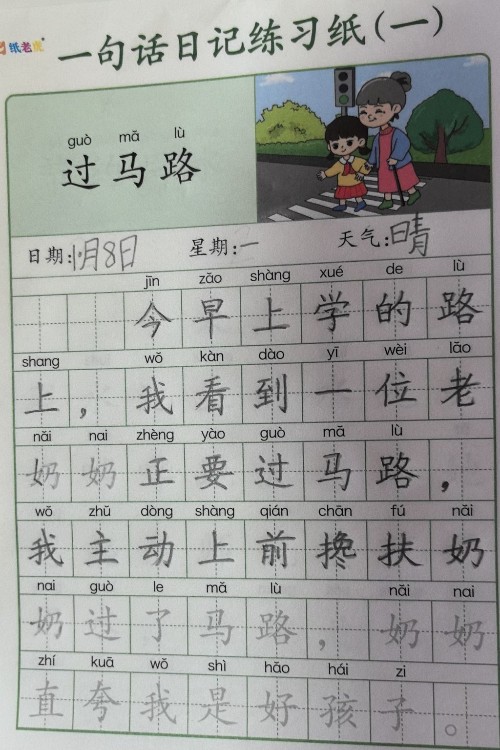 纸老虎
一句话日记练习纸(一)
guò mǎ lù
过马路
日期:10月8日 星期:一 天气:晴
jīn zǎo shàng xué de lù
今早上学的路
shang wǒ kàn dào yī wèi lǎo
上，我看到一位老
nǎi nai zhèng yào guò mǎ lù
奶奶正要过马路，
wǒ zhǔ dòng shàng qián chān fú nǎi
我主动上前搀扶奶
nai guò le mǎ lù nǎi nai
奶过了马路，奶奶
zhí kuā wǒ shì hǎo hái zi
直夸我是好孩子。